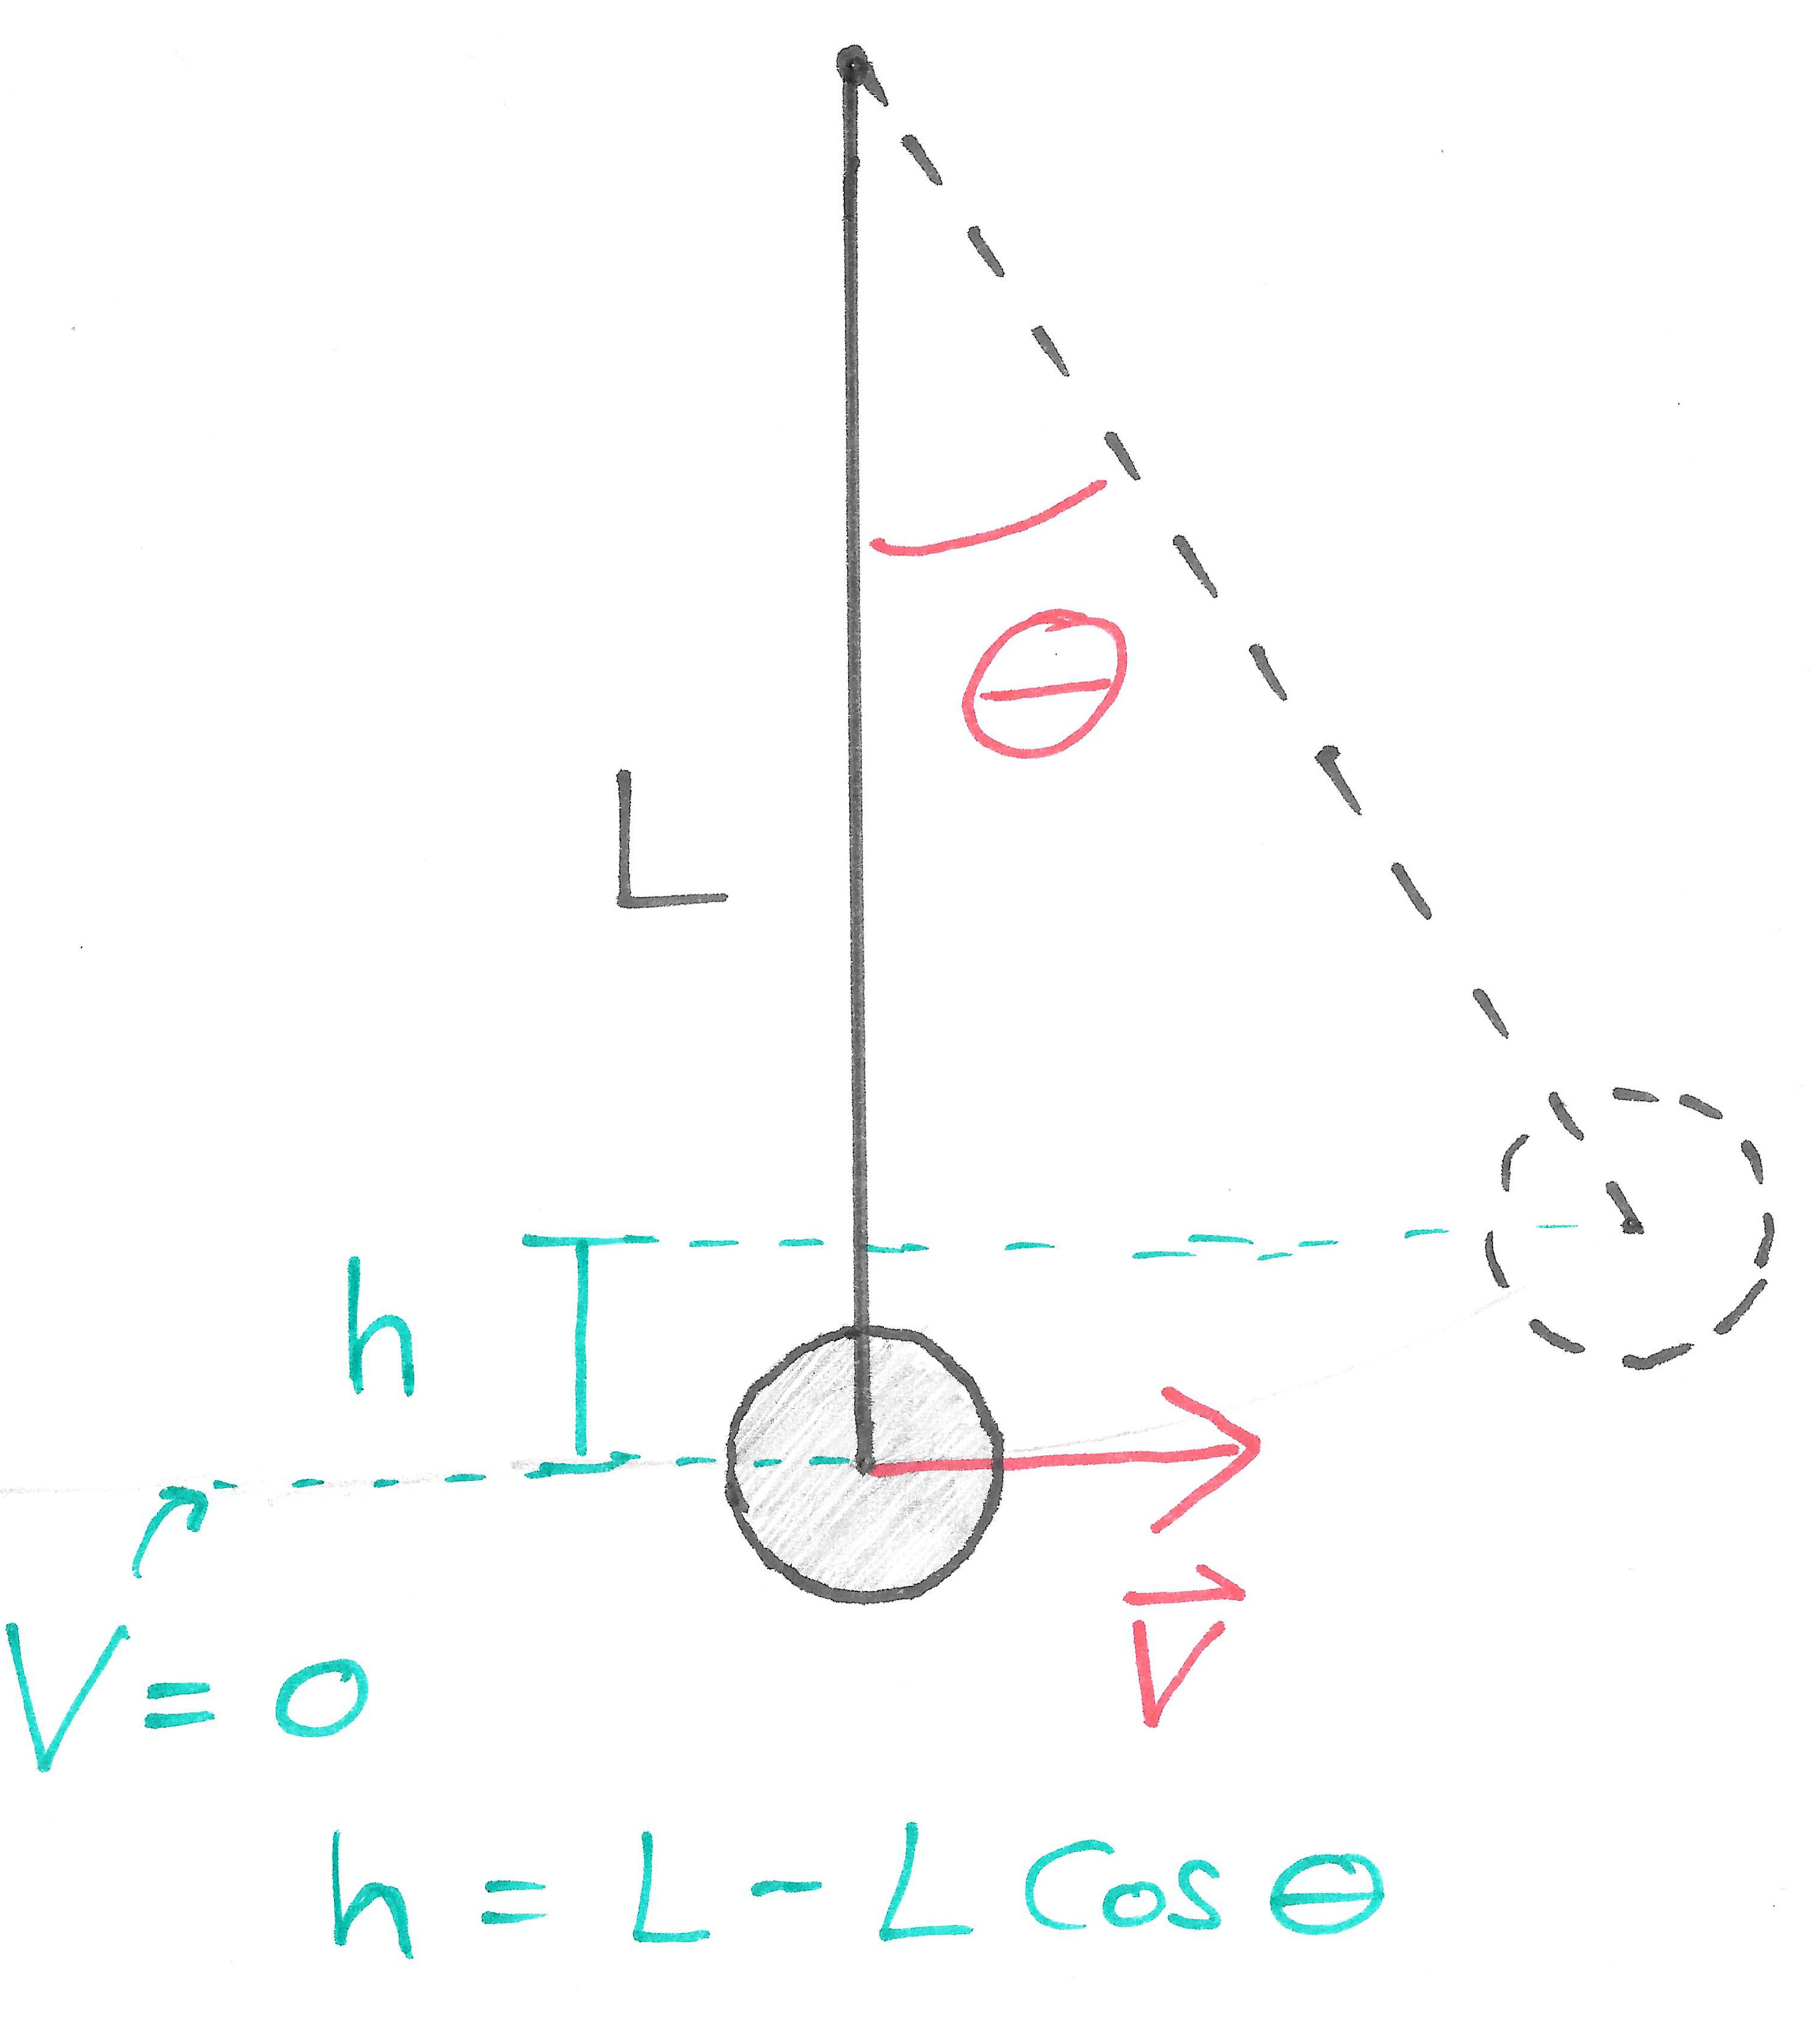 θ
L
h
V⃗
V = 0
h = L - L Cos θ